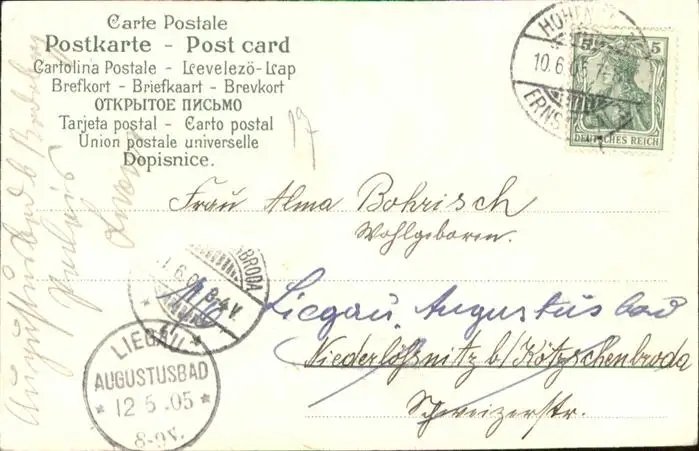 Carte Postale
Postkarte - Post card
Cartolina Postale - Levelező-Lap
Brefkort - Briefkaart - Brevkort
ОТКРЫТОЕ ПИСЬМО
Tarjeta postal - Carto postal
Union postale universelle
Dopisnice.
HOHEN
10.6.05
ERNST
5
DEUTSCHES REICH
17
Frau Alma Bohrisch
Wohlgeboren.
Liegau Augustusbad
Niederlößnitz b/Kötzschenbroda
Schweizerstr.
BRODA
8-9V.
LIEGAU
AUGUSTUSBAD
* 12 5 .05 *
8-9V.